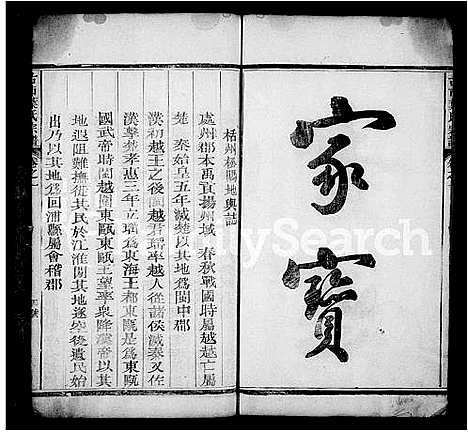 家寶
栝州極郡地輿誌
處州郡本禹貢揚州域春秋戰國時屬越越亡屬
楚秦始皇五年滅楚以其地爲閩中郡
漢初越王之後閩越君瑶率越人從諸侯滅秦又佐
漢擊楚孝惠三年立瑶爲東海王都東甌是爲東甌
國武帝時閩越圍東甌東甌王舉率衆降漢帝以其
地遐阻難撫徙其民於江淮閒其地遂空後遺民始
出乃以其地爲回浦縣屬會稽郡
FamilySearch